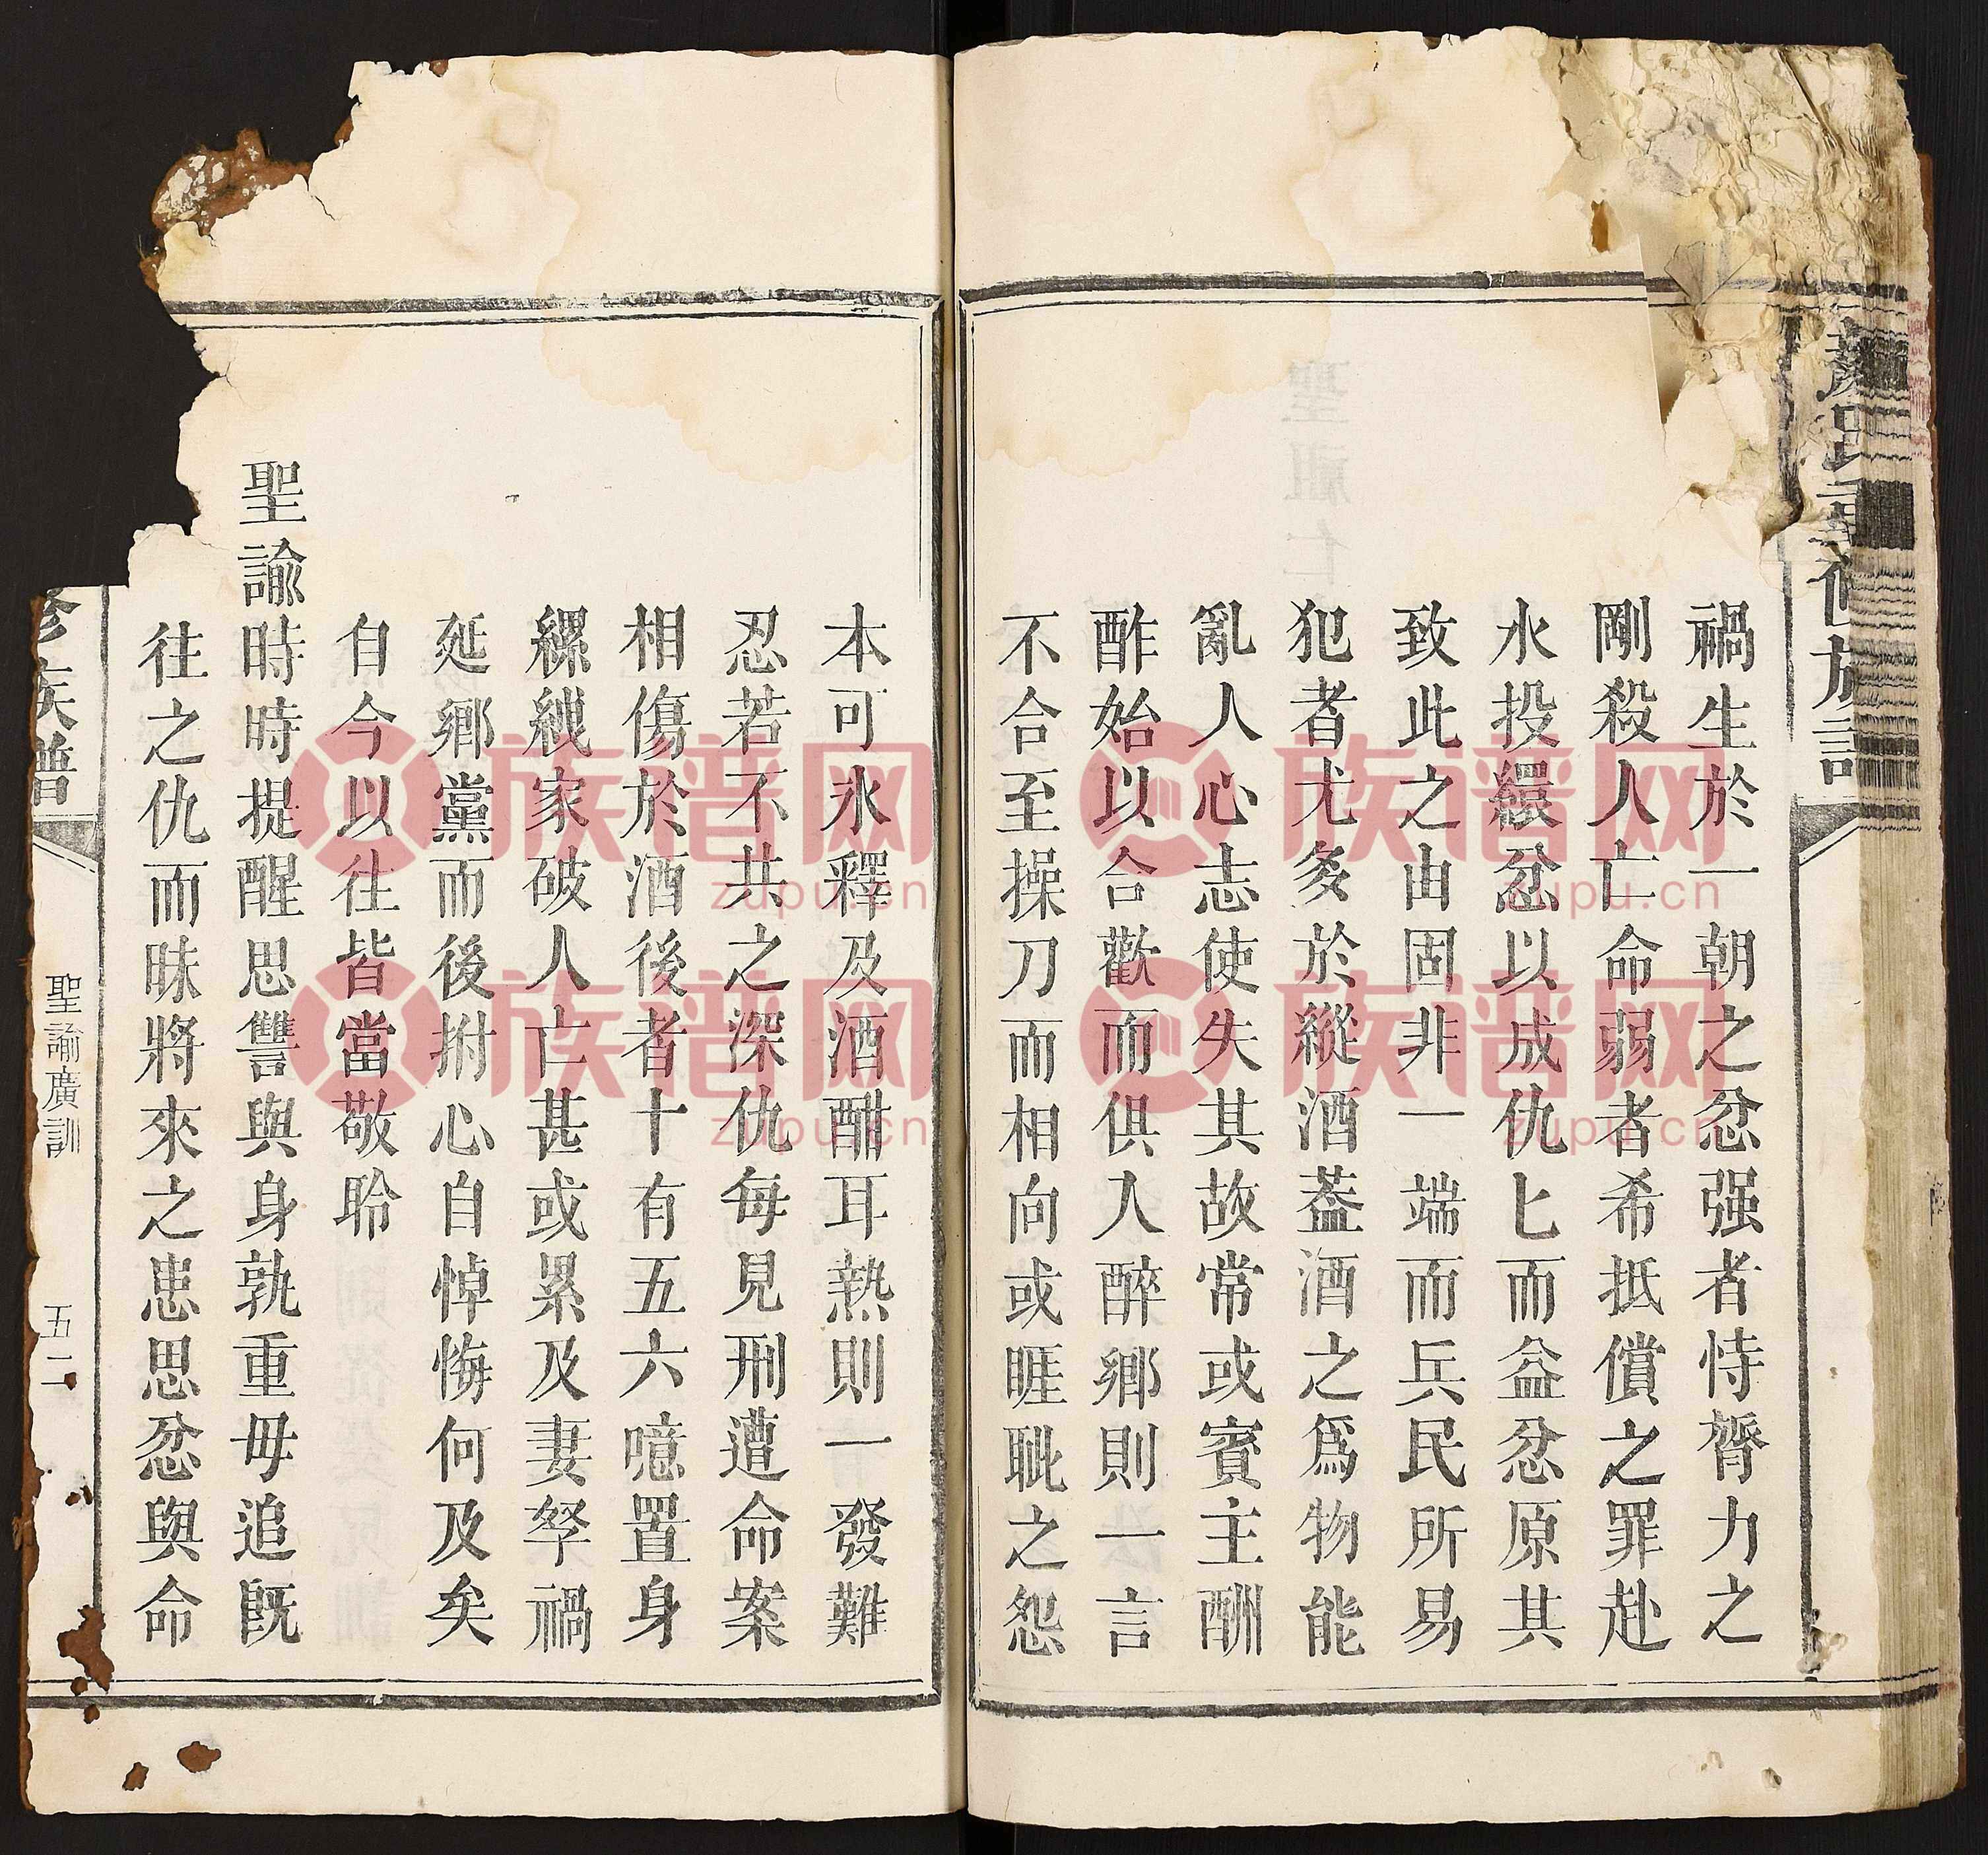 氏重修族譜
禍生於一朝之忿强者恃膂力之
剛殺人亡命弱者希抵償之罪赴
水投繯忿以成仇匕而益忿原其
致此之由固非一端而兵民所易
犯者尤多於縱酒葢酒之爲物能
亂人心志使失其故常或賓主酬
酢始以合歡而俱入醉鄉則一言
不合至操刀而相向或睚眦之怨
本可氷釋及酒酣耳熱則一發難
忍若不共之深仇每見刑遭命案
相傷於酒後者十有五六噫置身
縲絏家破人亡甚或累及妻孥禍
延鄉黨而後拊心自悼悔何及矣
自今以往皆當敬聆
聖諭時時提醒思讐與身孰重毋追旣
往之仇而昧將來之患思忿與命
修族譜
聖諭廣訓
五二
族谱网
zupu.cn
族谱网
zupu.cn
族谱网
zupu.cn
族谱网
zupu.cn